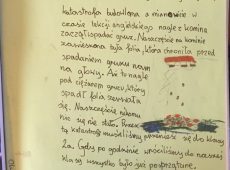 katastrofa budowlana a mianowicie w
czasie lekcji angielskiego nagle z komina
zaczął spadać gruz. Na szczęście na kominie
zawieszona była folia, która chroniła przed
spadaniem gruzu nam
na głowy. Aż tu nagle
pod ciężarem gruzu, który
spadł folia zerwała
się. Na szczęście nikomu
nic się nie stało. Przez
tą katastrofę musieliśmy przenieść się do klasy
Gdy po godzinie wróciliśmy do naszej
klasy wszystko było już posprzątane.